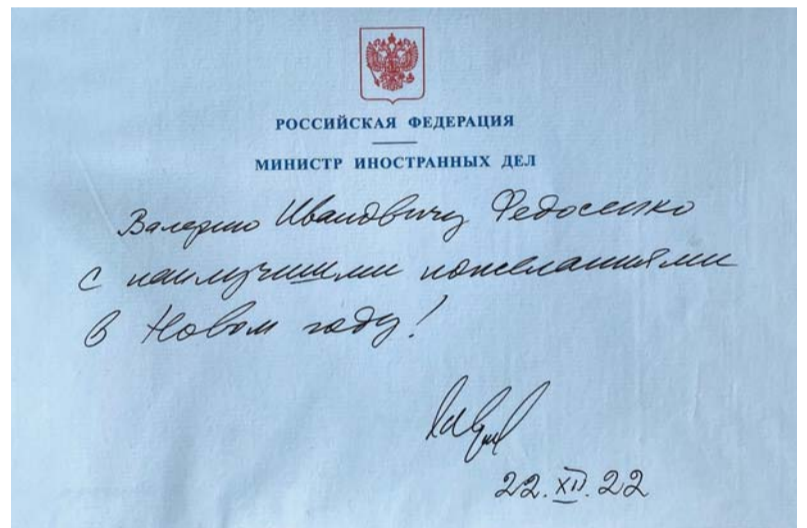 РОССИЙСКАЯ ФЕДЕРАЦИЯ
МИНИСТР ИНОСТРАННЫХ ДЕЛ
Валерию Ивановичу Федосенко
с наилучшими пожеланиями
в Новом году!
22.XII.22